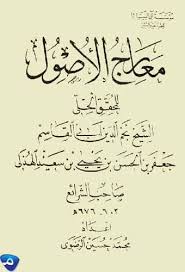 معارج الأصول
للمحقق الحلي
الشيخ نجم الدين أبي القاسم
جعفر بن الحسن بن يحيى بن سعيد الهذلي
صاحب الشرائع
٦٠٢ - ٦٧٦ هـ
إعداد
محمد حسين الرضوي